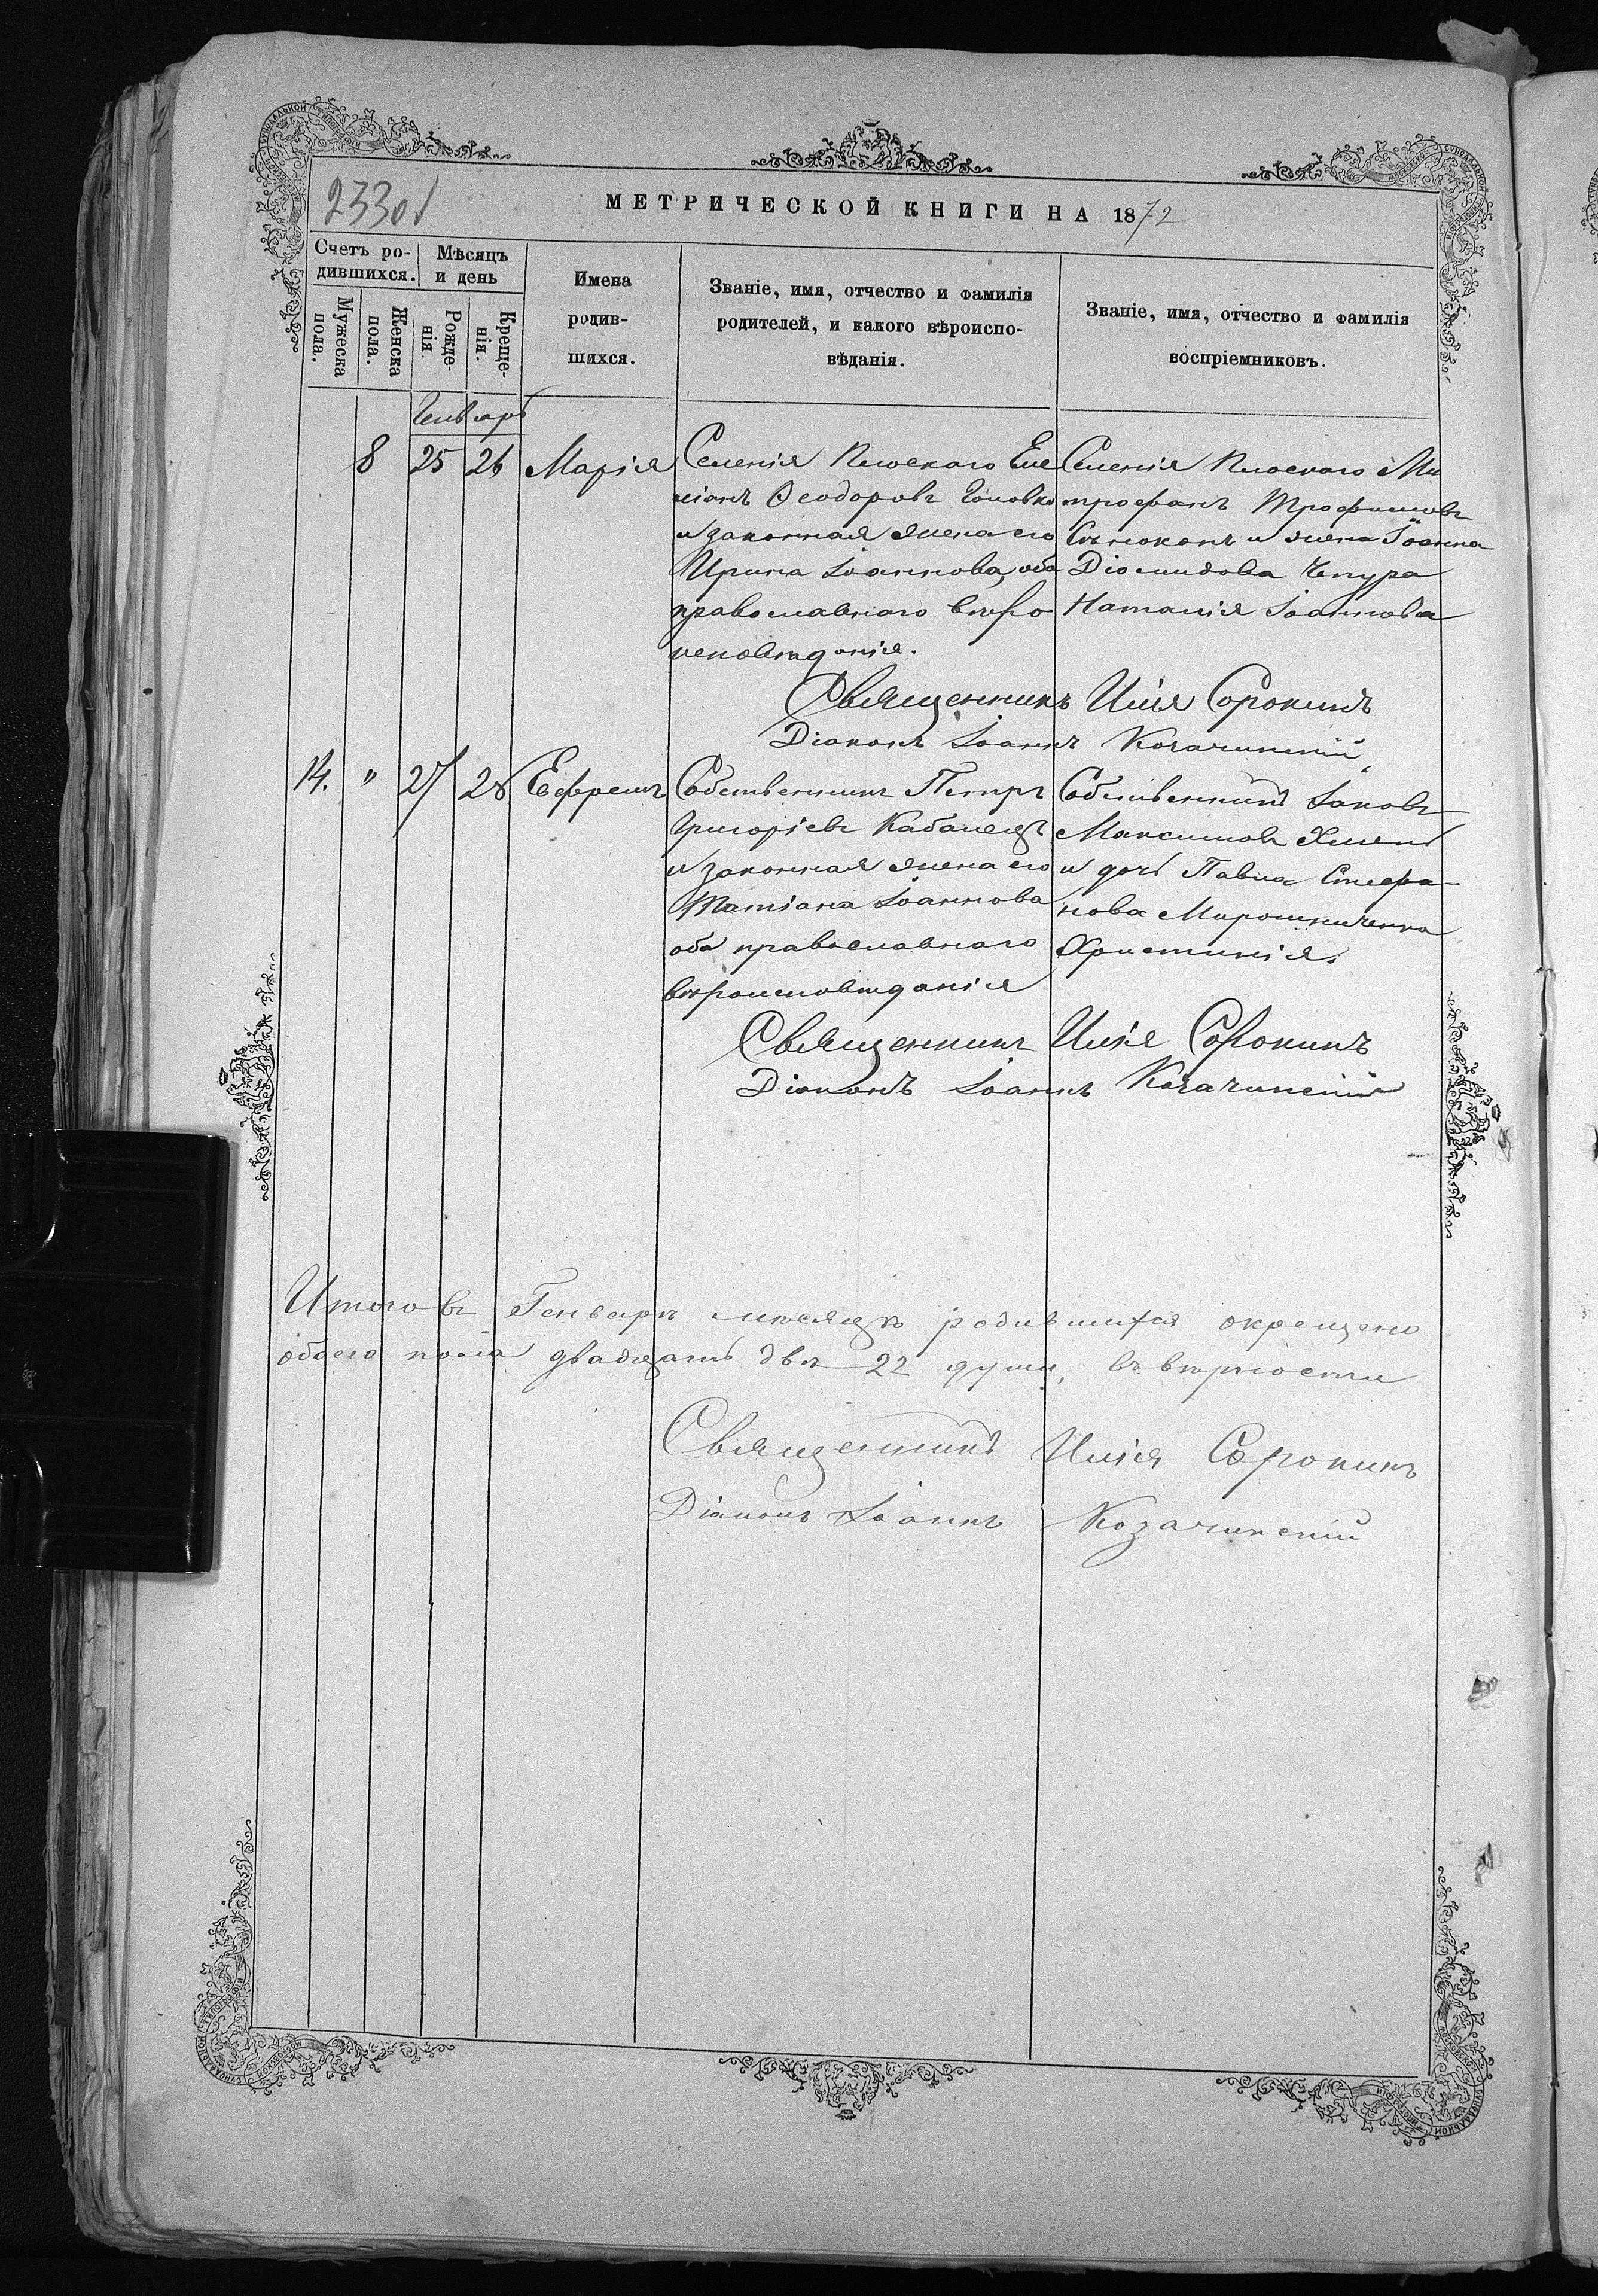 2330 об
МЕТРИЧЕСКОЙ КНИГИ НА 1872
Счетъ ро-
дившихся.
Мужеска
пола.
Женска
пола.
Мѣсяцъ
и день
Рожде-
нія.
Креще-
нія.
Имена
родив-
шихся.
Званіе, имя, отчество и фамилія
родителей, и какого вѣроиспо-
вѣданія.
Званіе, имя, отчество и фамилія
воспріемниковъ.
Генварь
8 25 26 Марія
Селенія Плоскаго Еме
ліанъ Ѳеодоровъ Головко
и законная жена его
Ирина Іоаннова, оба
православнаго вѣро
исповѣданія.
Селенія Плоскаго Ми
трофанъ Трофимовъ
и жена Іоанна
Діомидова Чепура
Наталія Іоаннова
Священникъ Илія Сорокинъ
Діаконъ Іоаннъ Козачинскій
14. " 27 28 Ефремъ
Собственникъ Петръ
Григоріевъ Кабанецъ
и законная жена его
Татіана Іоаннова
оба православнаго
вѣроисповѣданія
Собственникъ Іаковъ
Максимовъ
и дочь Павла Стефа-
нова Мирошниченка
Христинія.
Священникъ Илія Сорокинъ
Діаконъ Іоаннъ Козачинскій
Итого въ Генварѣ мѣсяцѣ родившихся окрещено
обоего пола двадцать двѣ 22 души, въ вѣрности
Священникъ Илія Сорокинъ
Діаконъ Іоаннъ Козачинскій